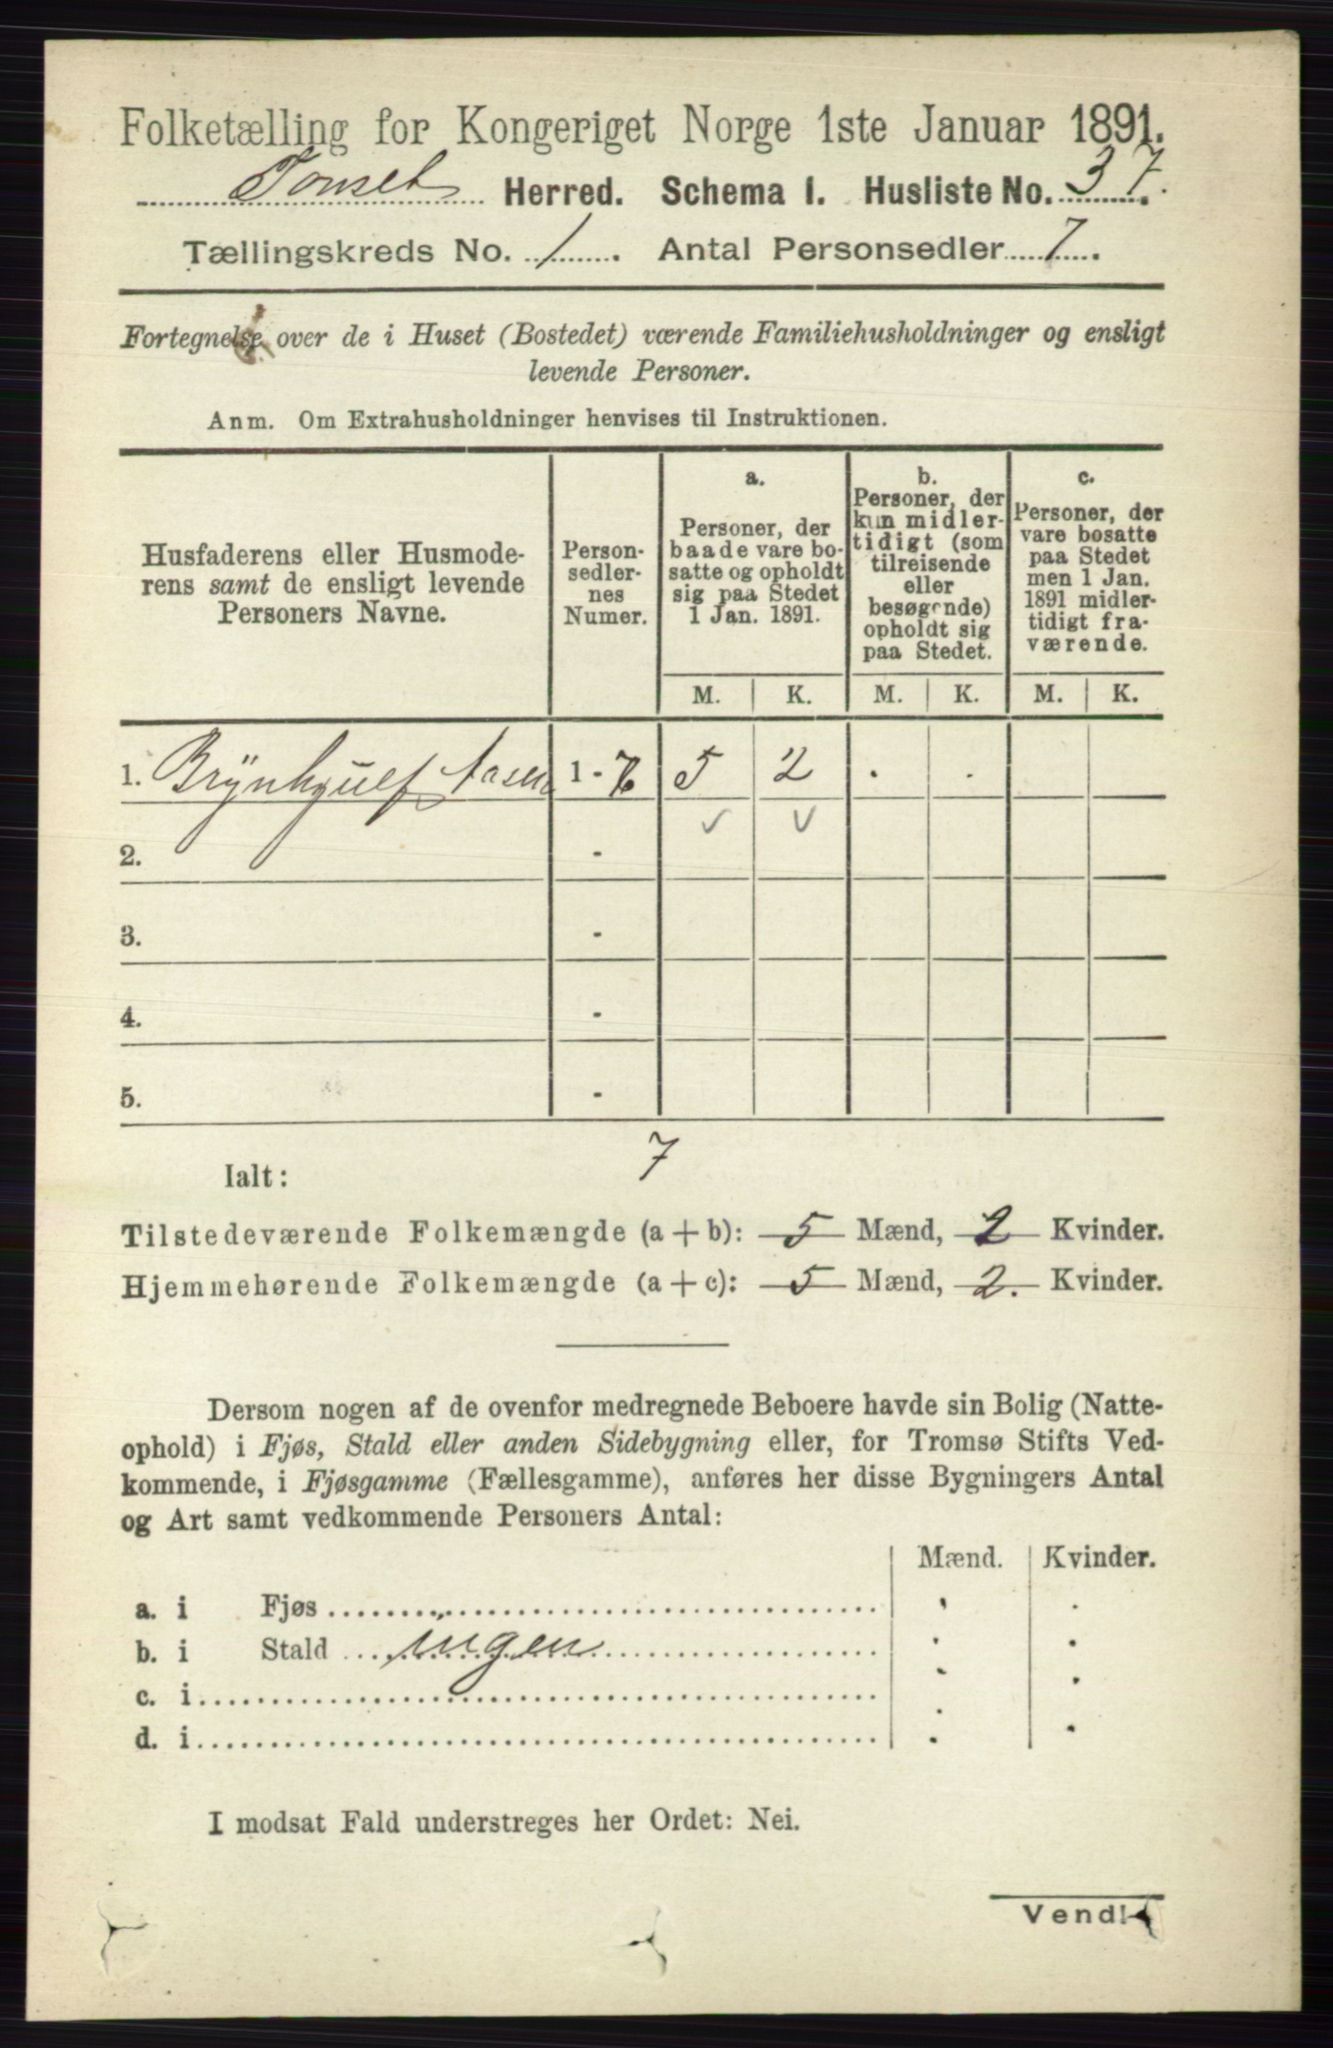 Folketælling for Kongeriget Norge 1ste Januar 1891.
Tonset Herred. Schema 1. Husliste No. 37.
Tællingskreds No. 1. Antal Personsedler 7.
Fortegnelse over de i Huset (Bostedet) værende Familiehusholdninger og ensligt
levende Personer.
Anm. Om Extrahusholdninger henvises til Instruktionen.
Husfaderens eller Husmode-
rens samt de ensligt levende
Personers Navne.
Person-
sedler-
nes
Numer.
a.
Personer, der
baade vare bo-
satte og opholdt
sig paa Stedet
1 Jan. 1891.
b.
Personer, der
kun midler-
tidigt (som
tilreisende
eller
besøgende)
opholdt sig
paa Stedet.
c.
Personer, der
vare bosatte
paa Stedet
men 1 Jan.
1891 midler-
tidigt fra-
værende.
M. K. M. K. M. K.
1. Brynhjulf Aasen 1 - 7 5 2 . .
✓ ✓
2. -
3. -
4. -
5. -
7
Ialt:
Tilstedeværende Folkemængde (a + b): 5 Mænd, 2 Kvinder.
Hjemmehørende Folkemængde (a + c): 5 Mænd, 2. Kvinder.
Dersom nogen af de ovenfor medregnede Beboere havde sin Bolig (Natte-
ophold) i Fjøs, Stald eller anden Sidebygning eller, for Tromsø Stifts Ved-
kommende, i Fjøsgamme (Fællesgamme), anføres her disse Bygningers Antal
og Art samt vedkommende Personers Antal:
Mænd. Kvinder.
a. i Fjøs
b. i Stald ingen
c. i
d. i
I modsat Fald understreges her Ordet: Nei.
Vend!